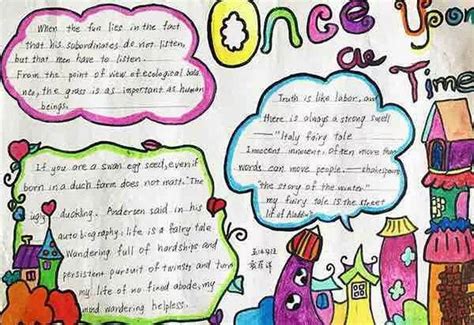 Once You
ae
Time
When the fun lies in the fact
that his subordinates do not listen,
but that men have to listen.
From the point of view of ecological bala
nce, the grass is as important as human
beings.
Truth is like labor, and
there is always a strong swell
— "Italy fairy tale
Innocent innocent, often more than
words can move people. — shakespeare
"the story of the winter"
my fairy tale is the street
lif of Aladdin
If you are a swan egg seed, even if
born in a duck farm does not matt. "The
ugly duckling. Andersen said in his
auto biography: life is a fairy tale
Wandering full of hardships and
persistent pursuit of twists and turn
my life of no fixed abode, my
mind wandering helpless.